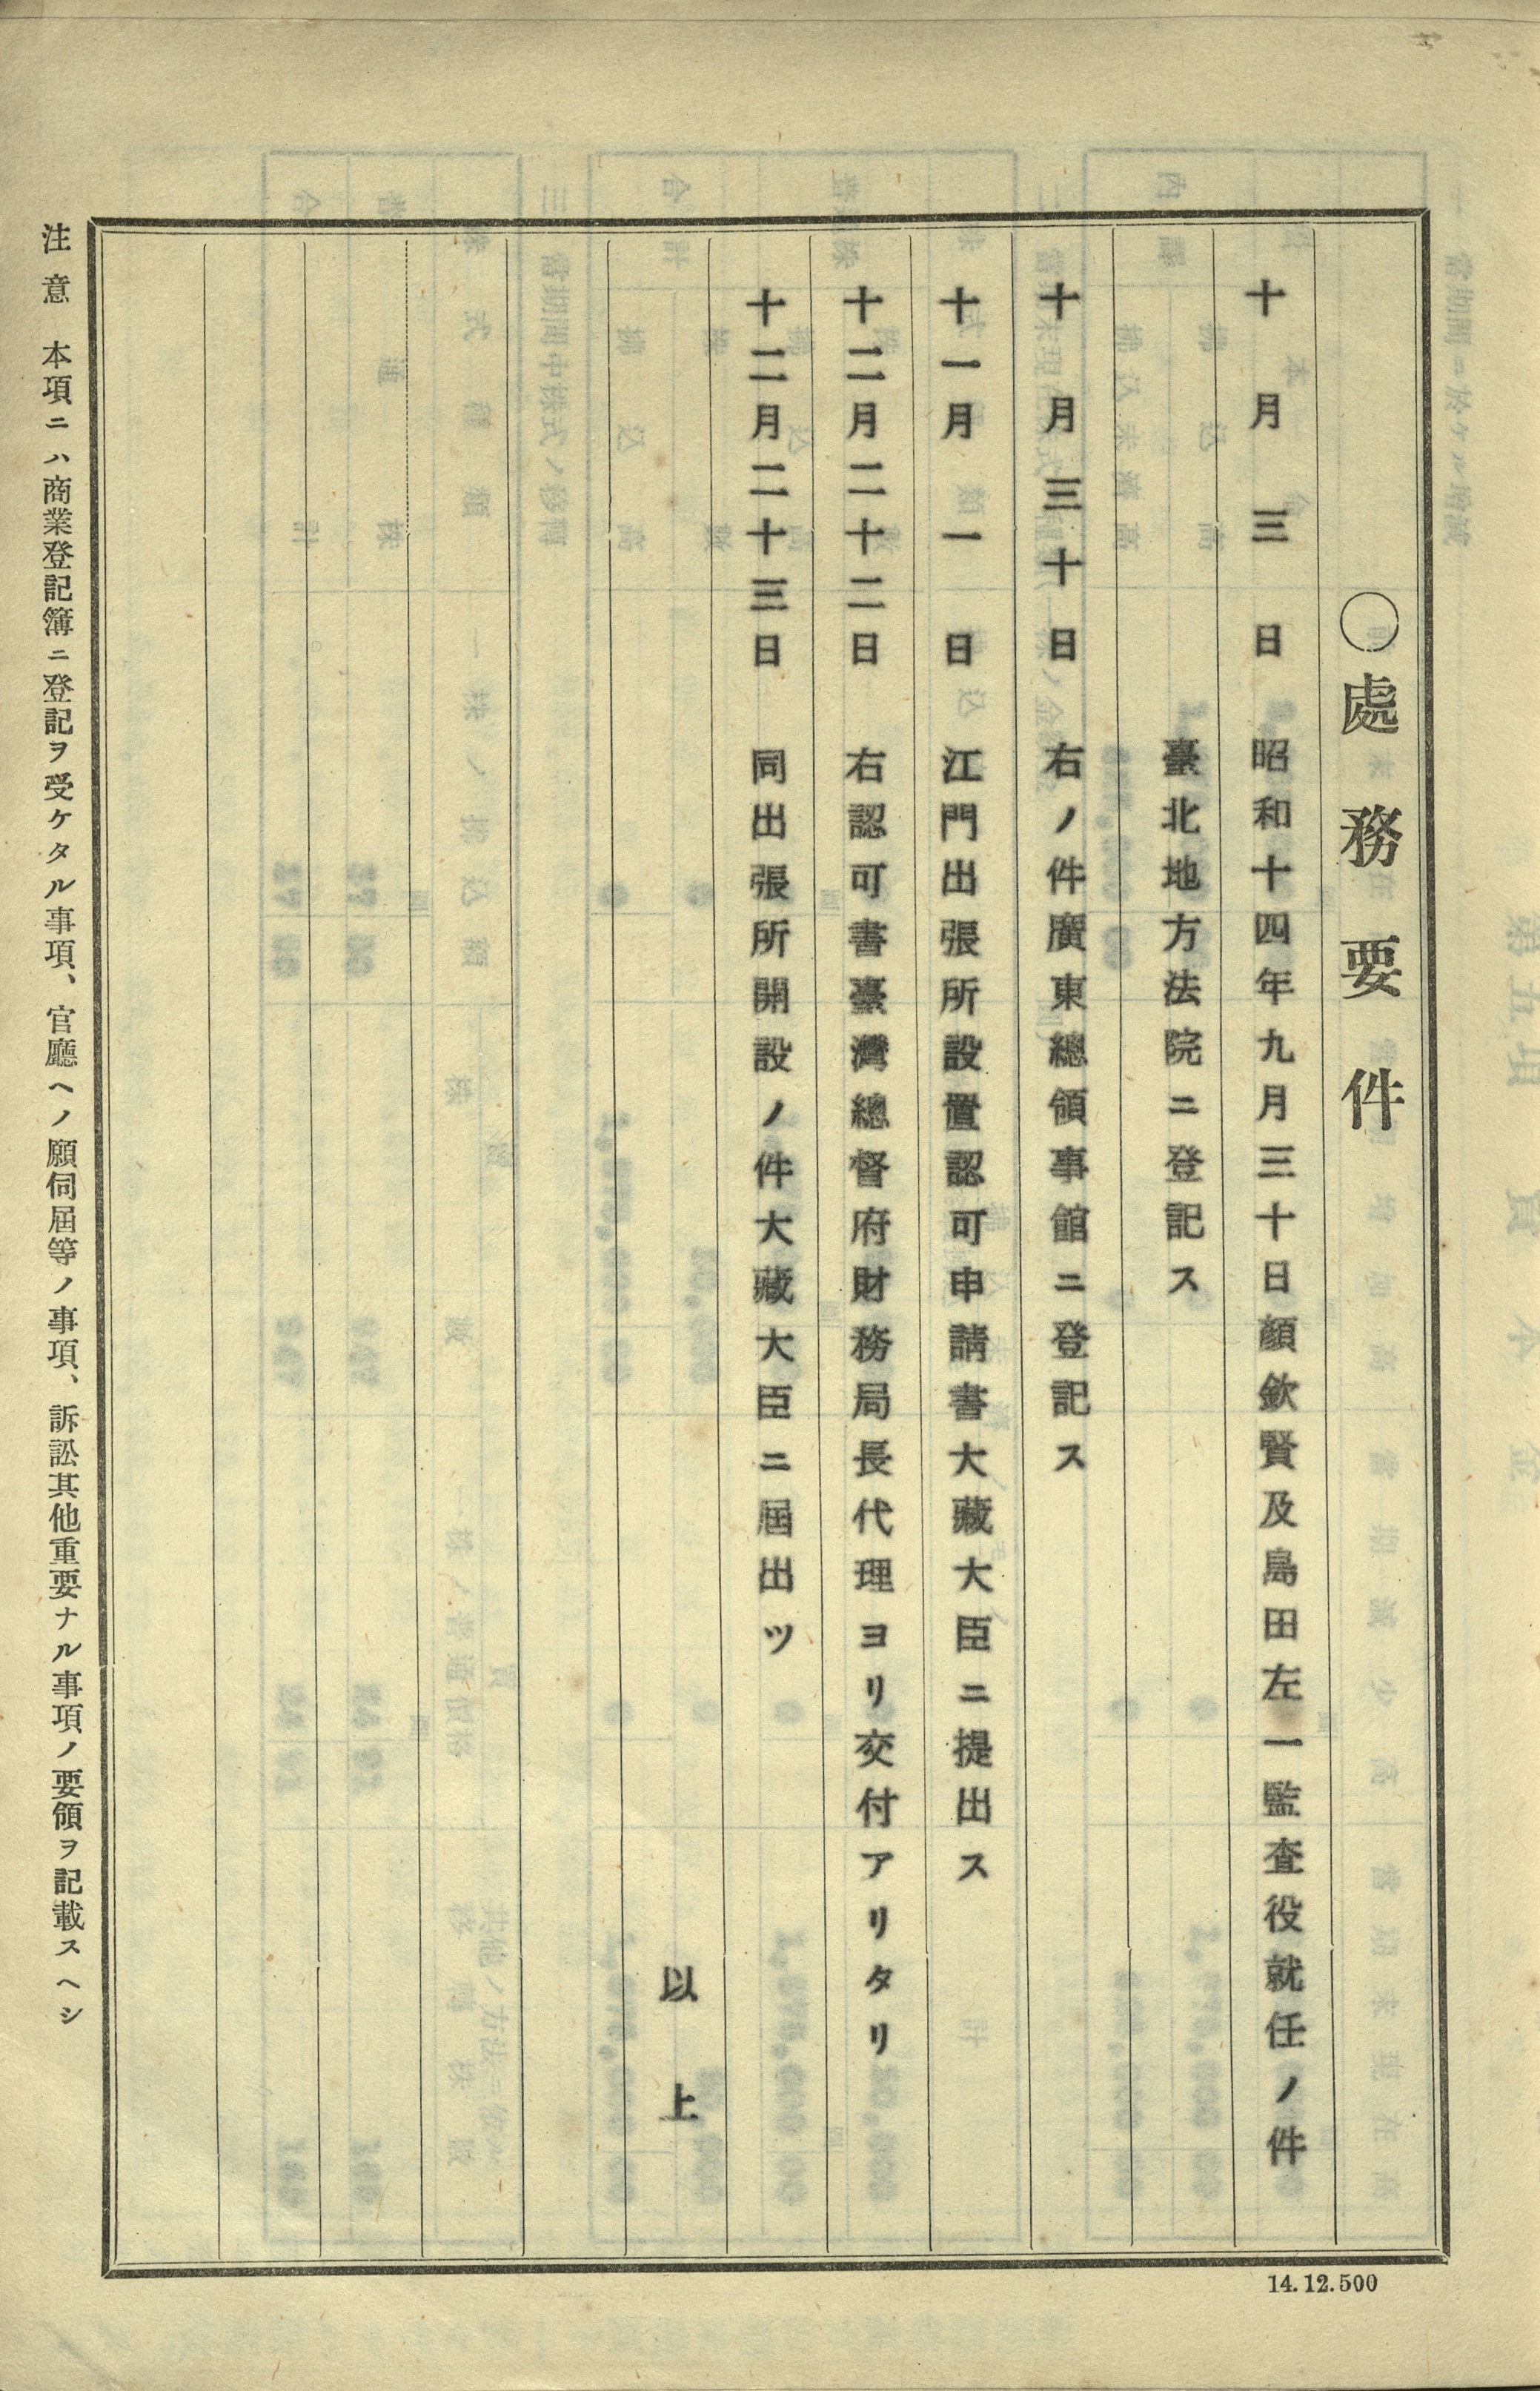 〇處務要件
十月三日 昭和十四年九月三十日顏欽賢及島田左一監査役就任ノ件
臺北地方法院ニ登記ス
十月三十日 右ノ件廣東總領事館ニ登記ス
十一月一日 江門出張所設置認可申請書大藏大臣ニ提出ス
十二月二十二日 右認可書臺灣總督府財務局長代理ヨリ交付アリタリ
十二月二十三日 同出張所開設ノ件大藏大臣ニ屆出ツ
以上
注意 本項ニハ商業登記簿ニ登記ヲ受ケタル事項、官廳ヘノ願伺屆等ノ事項、訴訟其他重要ナル事項ノ要領ヲ記載スヘシ
14.12.500